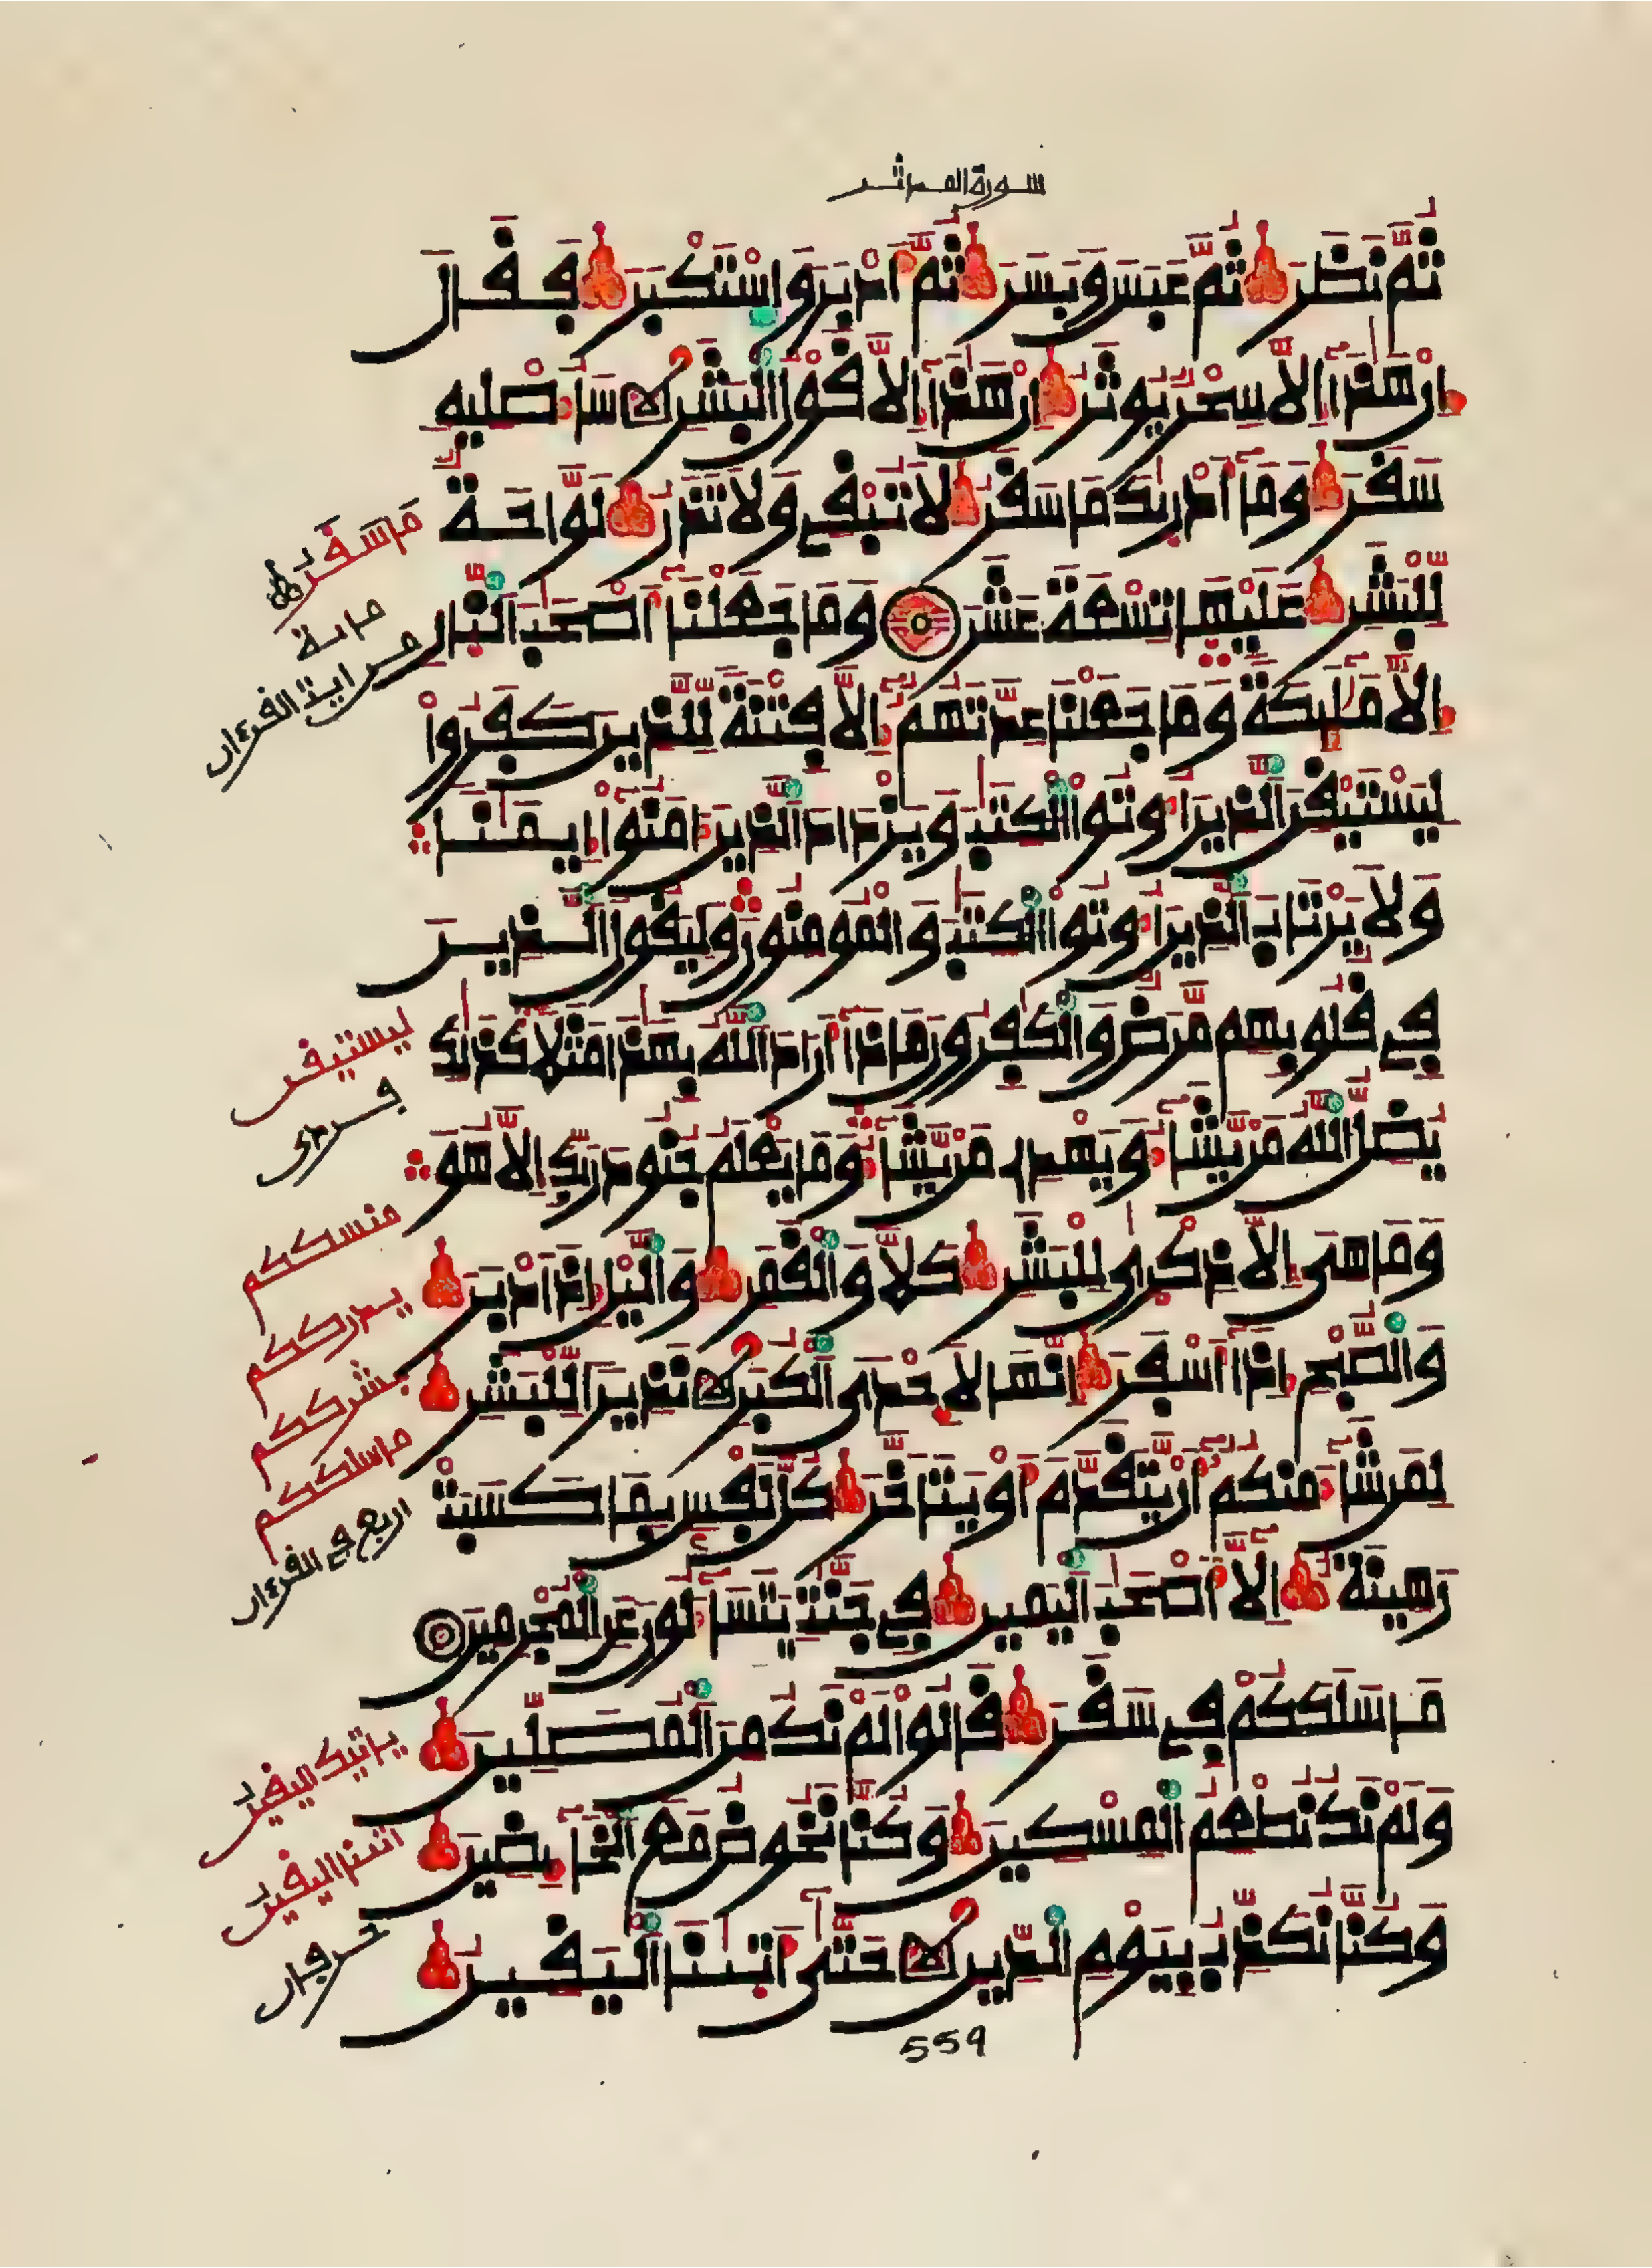 سورة المدثر
ثُمَّ نَظَرَ ثُمَّ عَبَسَ وَبَسَرَ ثُمَّ أَدْبَرَ وَاسْتَكْبَرَ فَقَالَ
إِنْ هَٰذَا إِلَّا سِحْرٌ يُوثَرُ إِنْ هَٰذَا إِلَّا قَوْلُ الْبَشَرِ سَأُصْلِيهِ
سَقَرَ وَمَا أَدْرَىٰكَ مَا سَقَرُ لَا تُبْقِى وَلَا تَذَرُ لَوَّاحَةٌ
لِّلْبَشَرِ عَلَيْهَا تِسْعَةَ عَشَرَ وَمَا جَعَلْنَا أَصْحَٰبَ النَّارِ
إِلَّا مَلَٰئِكَةً وَمَا جَعَلْنَا عِدَّتَهُمْ إِلَّا فِتْنَةً لِّلَّذِينَ كَفَرُوا
لِيَسْتَيْقِنَ الَّذِينَ أُوتُوا الْكِتَٰبَ وَيَزْدَادَ الَّذِينَ ءَامَنُوا إِيمَٰنًا
وَلَا يَرْتَابَ الَّذِينَ أُوتُوا الْكِتَٰبَ وَالْمُومِنُونَ وَلِيَقُولَ الَّذِينَ
فِى قُلُوبِهِم مَّرَضٌ وَالْكَٰفِرُونَ مَاذَا أَرَادَ اللَّهُ بِهَٰذَا مَثَلًا كَذَٰلِكَ
يُضِلُّ اللَّهُ مَنْ يَّشَاءُ وَيَهْدِى مَنْ يَّشَاءُ وَمَا يَعْلَمُ جُنُودَ رَبِّكَ إِلَّا هُوَ
وَمَا هِىَ إِلَّا ذِكْرَىٰ لِلْبَشَرِ كَلَّا وَالْقَمَرِ وَالَّيْلِ إِذْ أَدْبَرَ
وَالصُّبْحِ إِذَا أَسْفَرَ إِنَّهَا لَإِحْدَى الْكُبَرِ نَذِيرًا لِّلْبَشَرِ
لِمَن شَاءَ مِنكُمْ أَنْ يَّتَقَدَّمَ أَوْ يَتَأَخَّرَ كُلُّ نَفْسٍ بِمَا كَسَبَتْ
رَهِينَةٌ إِلَّا أَصْحَٰبَ الْيَمِينِ فِى جَنَّٰتٍ يَتَسَاءَلُونَ عَنِ الْمُجْرِمِينَ
مَا سَلَكَكُمْ فِى سَقَرَ قَالُوا لَمْ نَكُ مِنَ الْمُصَلِّينَ
وَلَمْ نَكُ نُطْعِمُ الْمِسْكِينَ وَكُنَّا نَخُوضُ مَعَ الْخَائِضِينَ
وَكُنَّا نُكَذِّبُ بِيَوْمِ الدِّينِ حَتَّىٰ أَتَىٰنَا الْيَقِينُ
مَا سَقَرُ
مائة
من اية القرءان
ليستيقن
فردى
منسككم
يدرككم
بشرككم
ما سلككم
اربع فى القرءان
ياتيك اليقين
اتىنا اليقين
حرفان
559